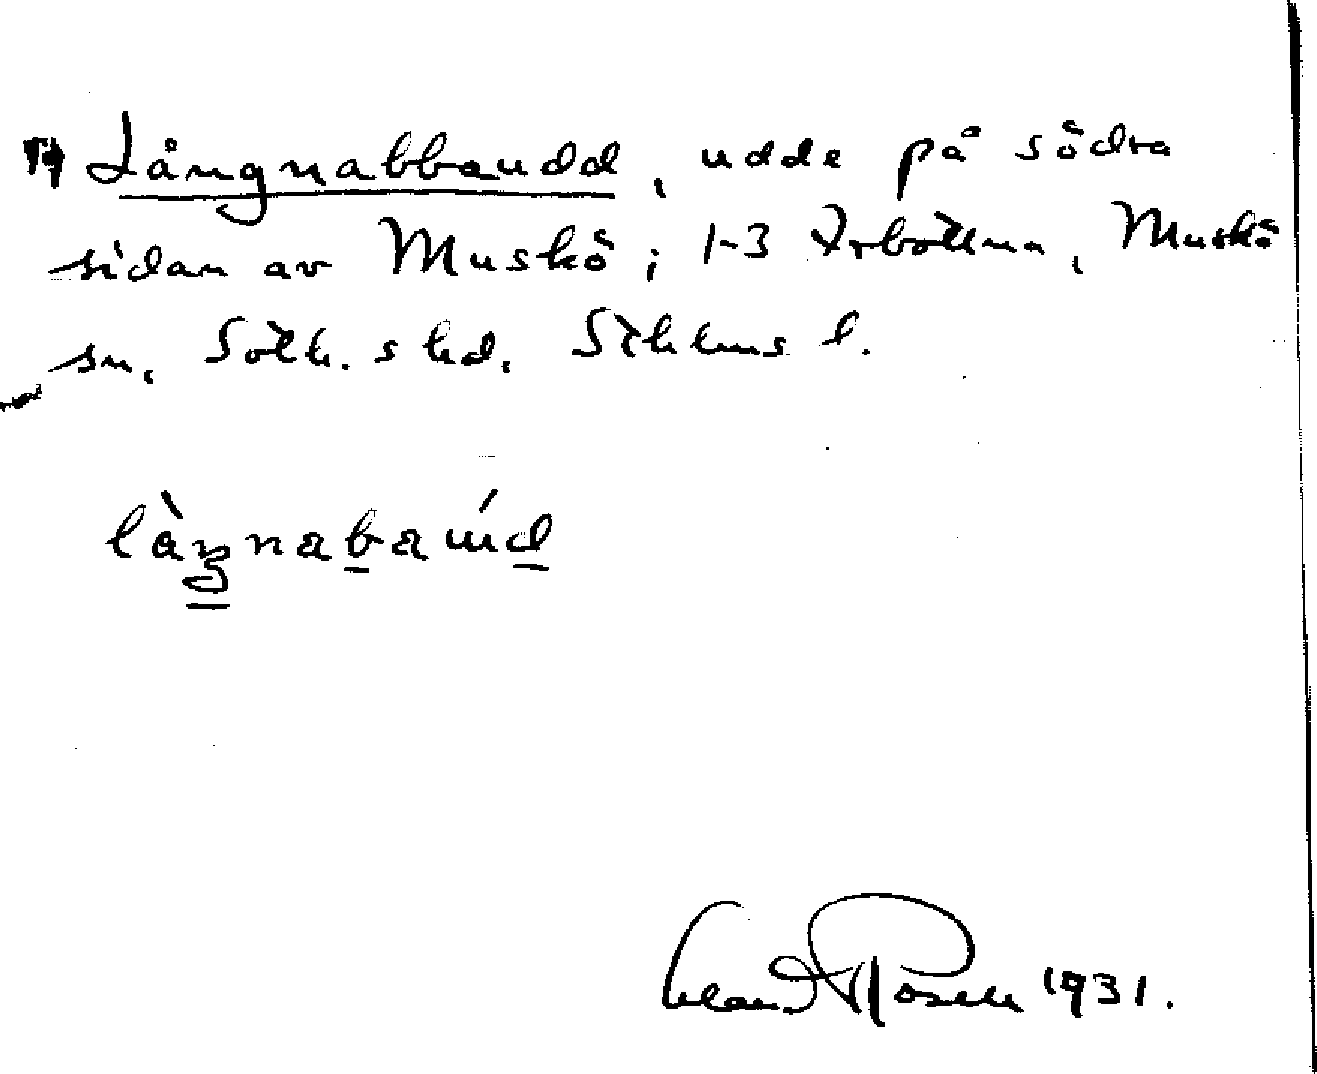 Långnabbaudd, udde på södra
sidan av Muskö; 1-3 Arbottna, Muskö
sn, Soth. skd, Sthlms l.
làŋnabaúd
Rosell 1931.